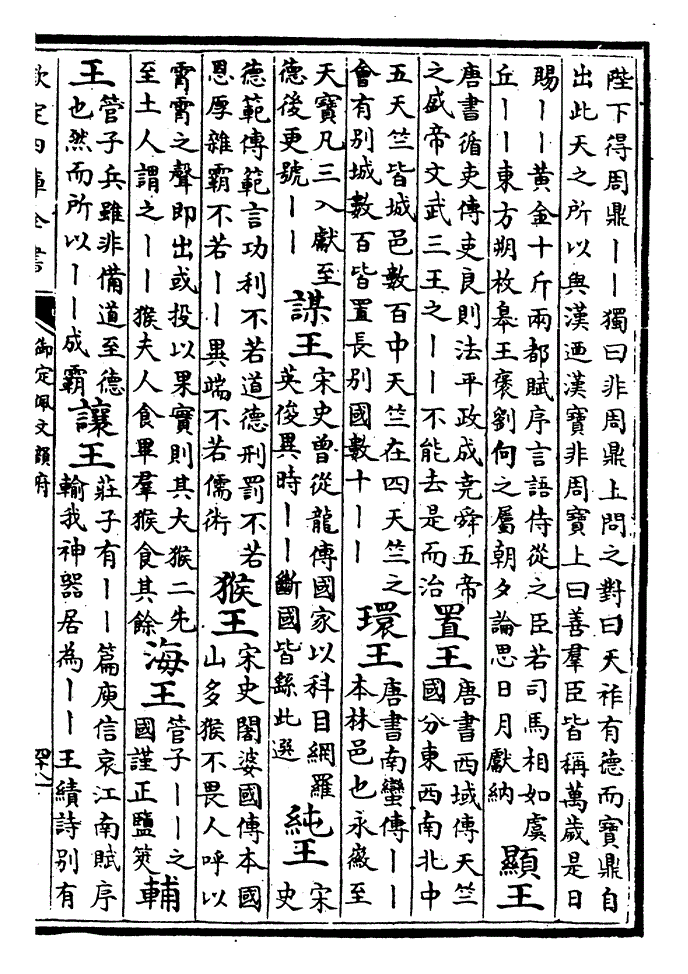 陛下得周鼎丨丨獨曰非周鼎上問之對曰天祚有德而寶鼎自
出此天之所以與漢迺漢寶非周寶上曰善羣臣皆稱萬歲是日
賜丨丨黄金十斤兩都賦序言語侍從之臣若司馬相如虞
丘丨丨東方朔枚臯王褒劉向之屬朝夕論思日月獻納
顯王
唐書循吏傳吏良則法平政成堯舜五帝
之盛帝文武三王之丨丨不能去是而治
置王
唐書西域傳天竺
國分東西南北中
五天竺皆城邑數百中天竺在四天竺之
會有别城數百皆置長别國數十丨丨
環王
唐書南蠻傳丨丨
本林邑也永徽至
天寶凡三入獻至
德後更號丨丨
謀王
宋史曾從龍傳國家以科目網羅
英俊異時丨丨斷國皆繇此選
純王
宋
史
德範傳範言功利不若道德刑罰不若
恩厚雜霸不若丨丨異端不若儒術
猴王
宋史闍婆國傳本國
山多猴不畏人呼以
霄霄之聲即出或投以果實則其大猴二先
至土人謂之丨丨猴夫人食畢羣猴食其餘
海王
管子丨丨之
國謹正鹽筴
輔
王
管子兵雖非備道至德
也然而所以丨丨成霸
讓王
莊子有丨丨篇庾信哀江南賦序
輸我神器居為丨丨王績詩别有
欽定四庫全書
御定佩文韻府